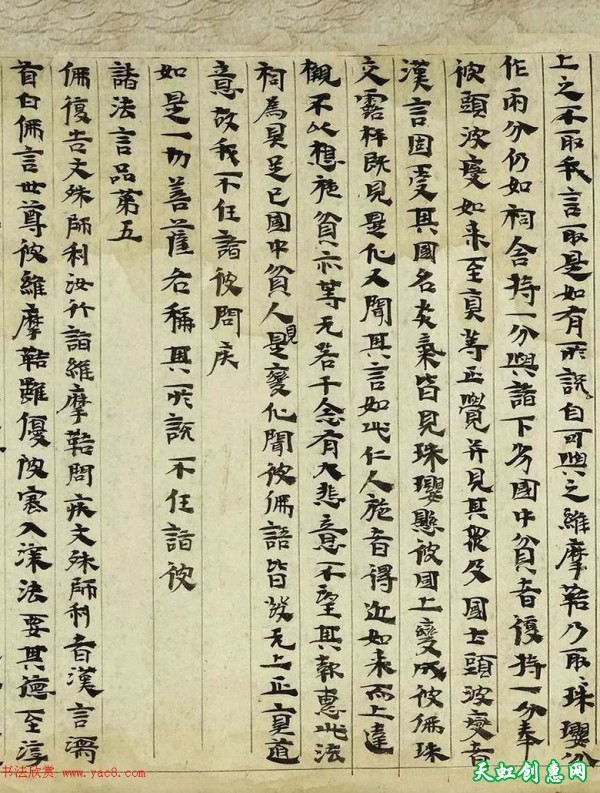 上之不取我言取是如有所說自可與之維摩鞊乃取珠瓔分
作兩分仍如祠舍持一分與諸下劣國中貧者復持一分奉
彼頭波變如來至真等正覺并見其眾及國土頭波變者
漢言固受其國名炎氣皆見珠瓔懸彼國上變成彼佛珠
交露棚既見是化又聞其言如此仁人施者得近如來而上達
嚫不以想施貧亦等无若干念有大悲意不望其報惠此法
祠為具足已國中貧人見是變化聞彼佛語皆發无上正真道
意故我不任詣彼問疾
如是一切菩薩各稱其所說不任詣彼
諸法言品第五
佛復告文殊師利汝行詣維摩鞊問疾文殊師利者漢言濡
首白佛言世尊彼維摩鞊雖優婆塞入深法要其德至淳
书法欣赏 www.yac8.com
天虹创惠网